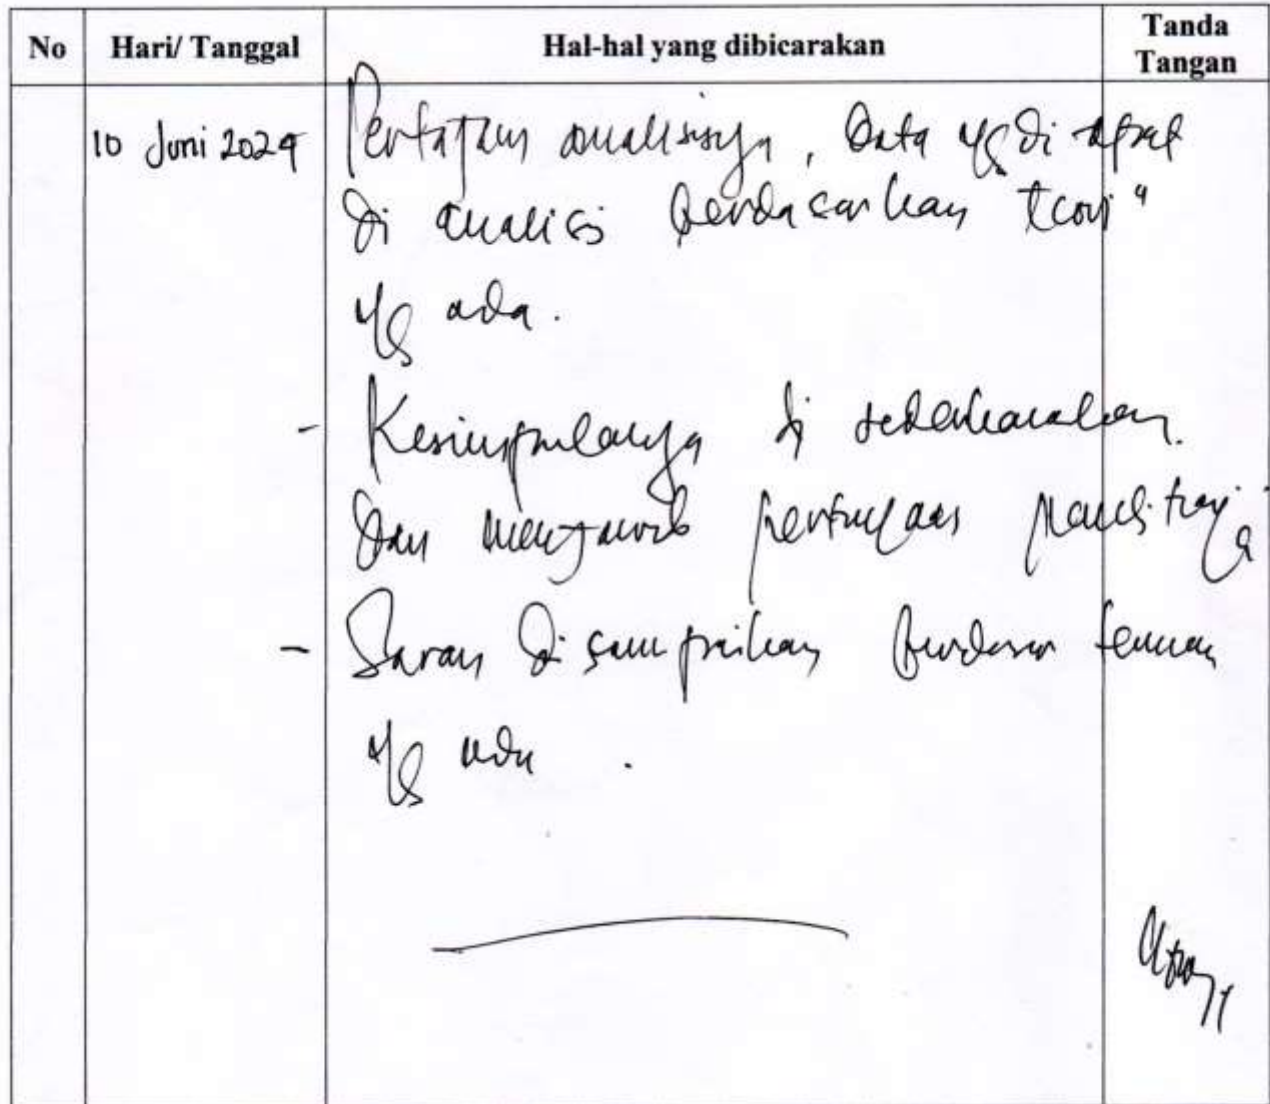 No Hari/ Tanggal Hal-hal yang dibicarakan Tanda Tangan
10 Juni 2024 Pertajam analisisnya, Data yg di dapat
di analisis berdasarkan teori"
yg ada.
- Kesimpulannya di sederhanakan.
Dan menjawab pertanyaan penelitiannya
- Saran disampaikan berdasar temuan
yg ada.